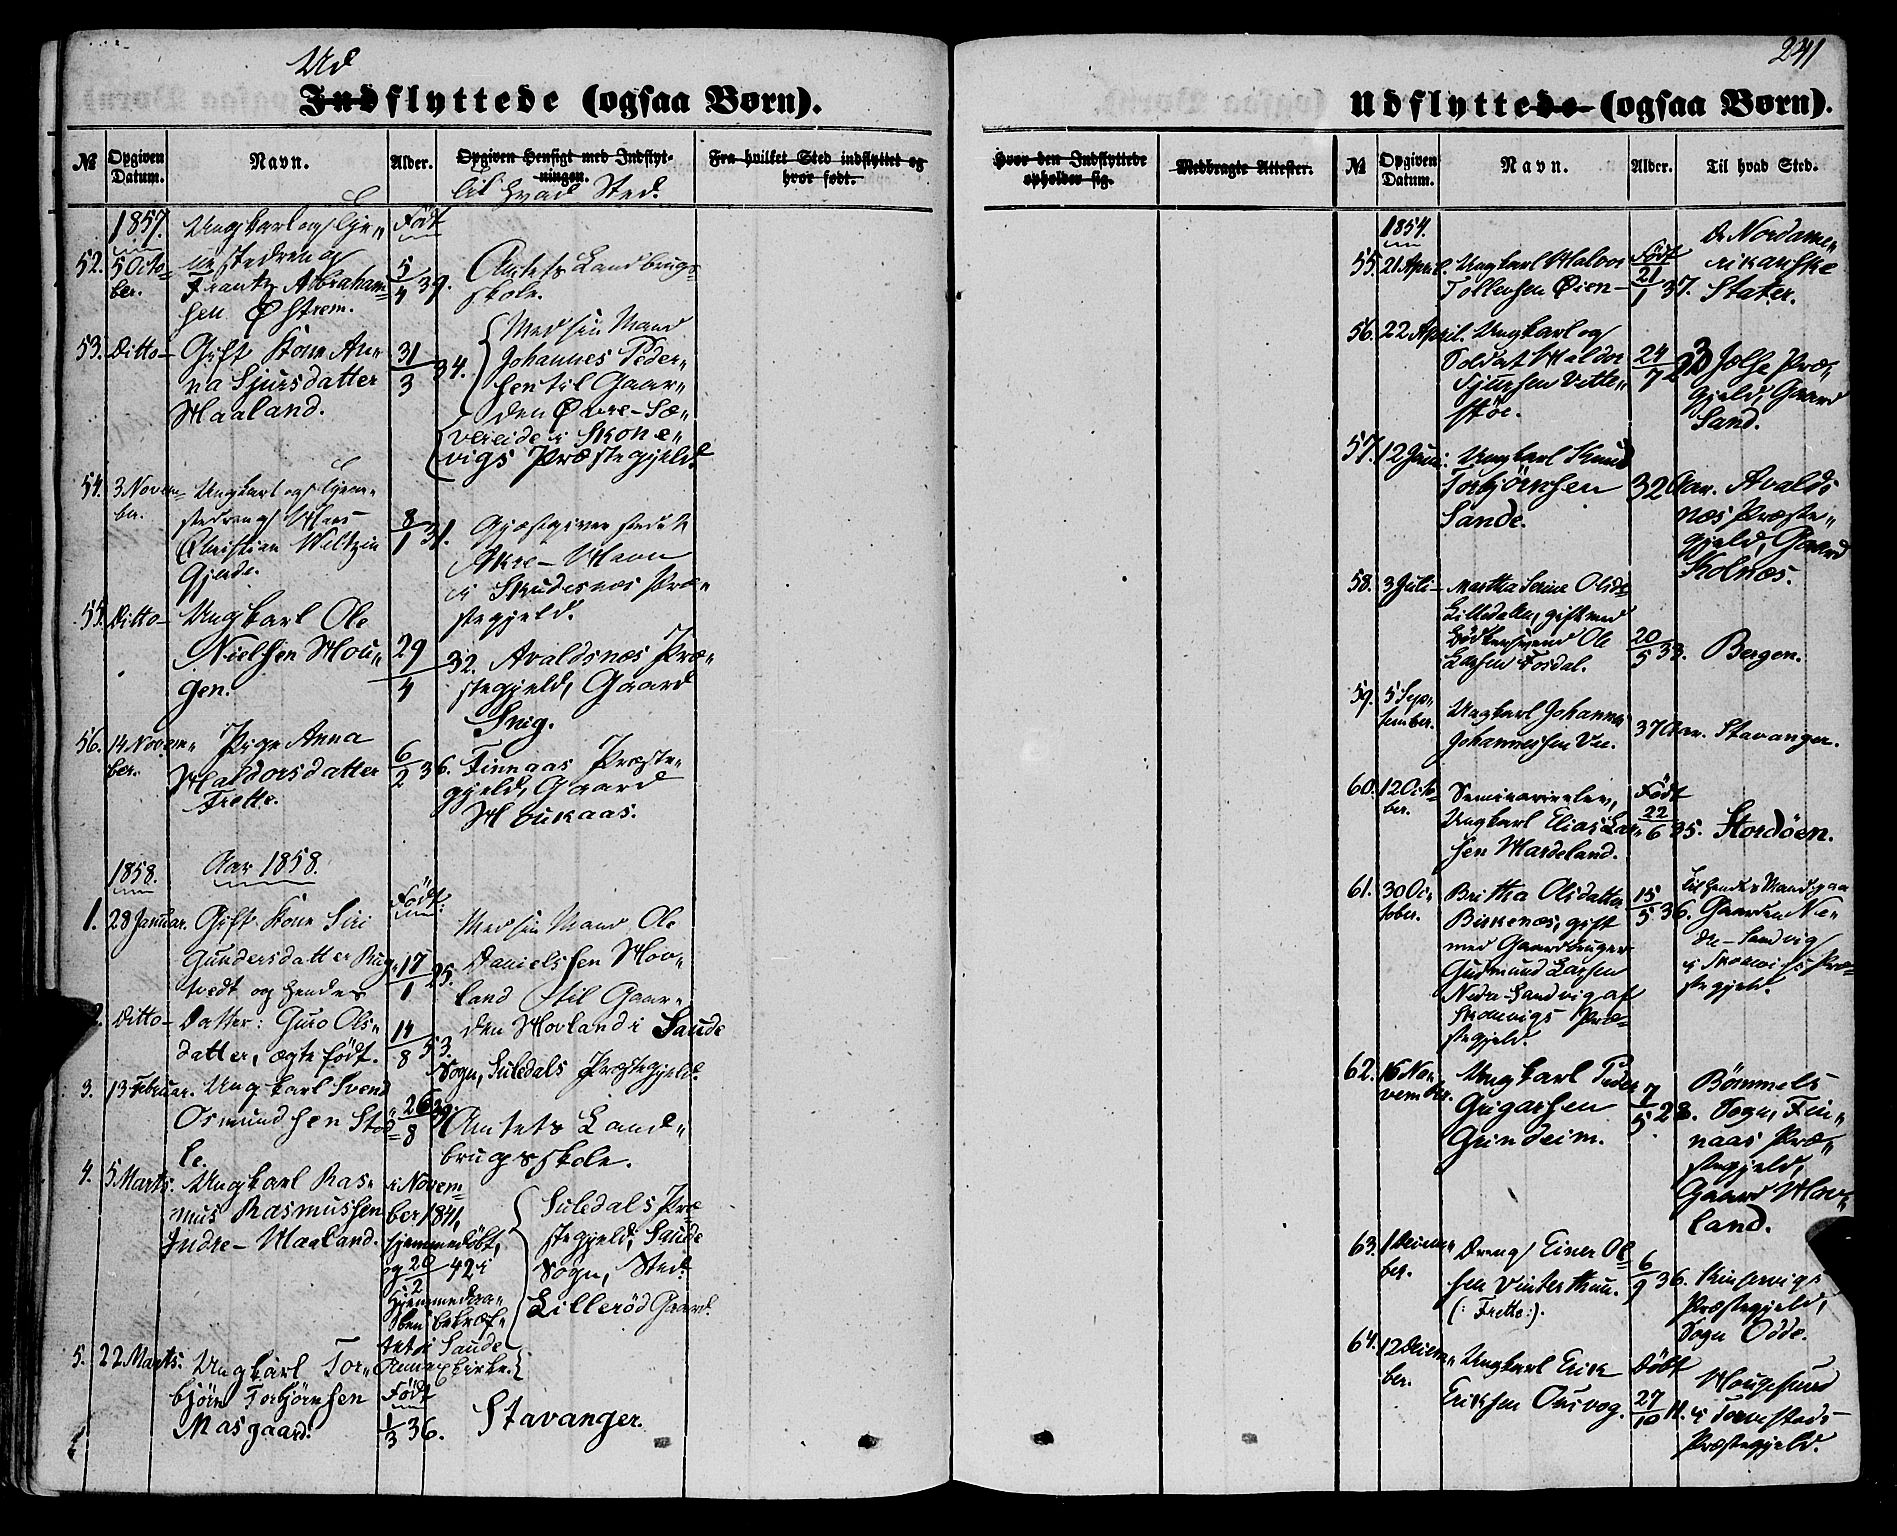 241
Ud
Indflyttede (ogsaa Børn).
Udflyttede (ogsaa Børn).
№ Opgiven Datum. Navn. Alder. Opgiven Hensigt med Indflyt-ningen. Fra hvilket Sted indflyttet og hvor født.
Til hvad Sted.
1857. Født
52. 5 Octo-
ber. Frantz Abraham-
sen Østrem. 5/4 39. Amtets Landbrugs-
skole.
53. Ditto- Gift Kone An-
na Sjursdatter
Maaland. 31/3 34. Med sin Mand
Johannes Peder-
sen til Gaar-
den Øvre-Sæ-
vereide i Skone-
vigs Præstegjeld.
54. 3 Novem-
ber. Ungkarl og Tjene-
stedreng
Christian Weltzin
Gjerde. 8/1 31.
Akre-Havn
i Skudesnes Præ-
stegjeld.
55. Ditto- Ungkarl Ole
Nielsen Hou-
gen. 29/4 32. Avaldsnes Præ-
stegjeld, Gaard
56. 14 Novem-
ber. Pige Anna
Haldorsdatter
Frette. 6/2 36. Finnaas Præste-
gjeld, Gaard
Houkaas.
1858. Aar 1858.
Født:
1. 28 Januar. Gift Kone Siri
Gundersdatter
tvedt og hendes 17/1 25. Med sin Mand Ole
Danielssen Hov-
land til Gaar-
den Hovland i Saude
Sogn, Suledals Præstegjeld.
2. Ditto- Datter: Guro Ols-
datter, ægte født. 14/8 53.
3. 13 Februar. Ungkarl Svend
Osmundsen Stø-
le. 26/8 39. Amtets Land-
brugsskole.
4. 5 Marts. Ungkarl Ras-
mus Rasmussen
Indre-Maaland. i Novem-
ber 1841,
hjemmedøbt,
og 20/2 42 i
Saude
Annexkirke. Suledals Præ-
stegjeld, Saude
Sogn, Sted:
Lillerød Gaard.
5. 22 Marts. Ungkarl Tor-
bjørn Torbjørnsen
Masgaard. Født
1/3 36. Stavanger.
Hvor den Indflyttede opholder sig. Medbragte Attester. № Opgiven Datum. Navn. Alder. Til hvad Sted.
1854.
55. 21 April. Ungkarl Halvor
Tollevsen Øien- Født
21/1 37. De Nordame-
rikanske
Stater.
56. 22 April. Ungkarl og
Soldat Haldor
Sjursen Vette-
støe. 24/7 Jelse Præ-
gjeld, Gaard
Sand.
57. 12 Juni. Ungkarl Knud
Torbjørnsen
Sande. 32 Aar. Avalds-
næs Præste-
gjeld, Gaard
Kolnæs.
58. 3 Juli- Martha Serine Olsdr
Lilledalen, gift med
Bødkersvend Ole
Larsen Fosdal. 20/5 33. Bergen.
59. 5 Sep-
tember. Ungkarl Johannes
Johannessen Vee. 37 Aar. Stavanger.
60. 12 Octo-
ber. Seminarieelev,
Ungkarl Elias Lar-
sen Hardeland. Født
22/6 35. Stordøen.
61. 30 Oc-
tober. Britha Olsdatter
Birkenæs, gift
med Gaardbruger
Gudmund Larsen
Nedre-Sandvig af
Skonevigs Præ-
stegjeld. 15/5 36. til hendes Mand paa
Gaarden Ne-
dre-Sandvig
i Skonevigs Præ-
stegjeld.
62. 16 No-
vember. Ungkarl Peder
Grigarsen
Grindeim. 7/5 28. Bømmels
Sogn, Fin-
naas Præ-
stegjeld,
Gaard Hov-
land.
63. 1 Decem-
ber. Dreng Einer Ol-
sen Vinterthun.
(: Frette :). 6/9 36. Kinservigs
Præstegjeld,
Sogn Odde.
64. 12 Decem-
ber. Ungkarl Erik
Eriksen Ousvog. Døbt
27/10 11. Hougesund
i Torvestads-
Præstegjeld.